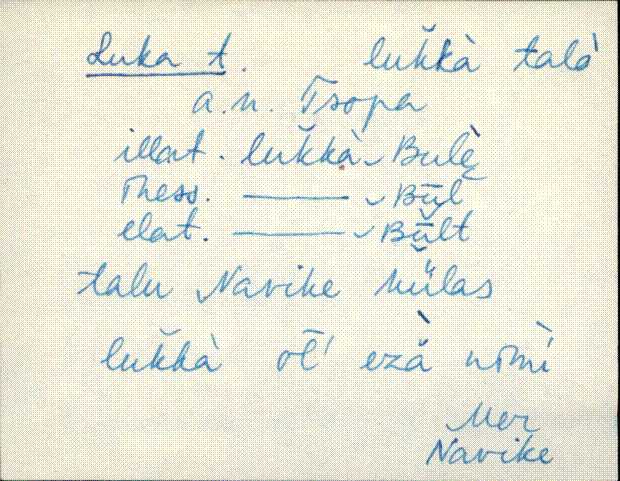 Luka t. lukkà talò
a.n. Tsopa
illat. lukkà ⌣ Bulè
Iness. ——— ⌣ Būl
elat. ——— ⌣ Būlt
talu Navike külas
lukkà ol̄' ezà nìmì
Mer
Navike